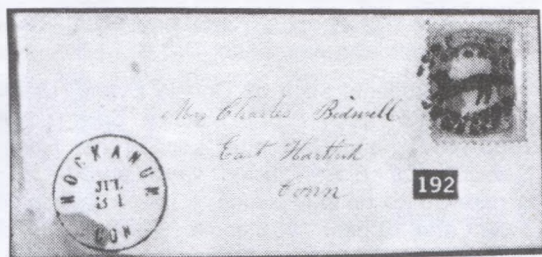 Mrs Charles Bidwell
East Hartford
Conn
HOCKANUM
JUL
31
CON
192